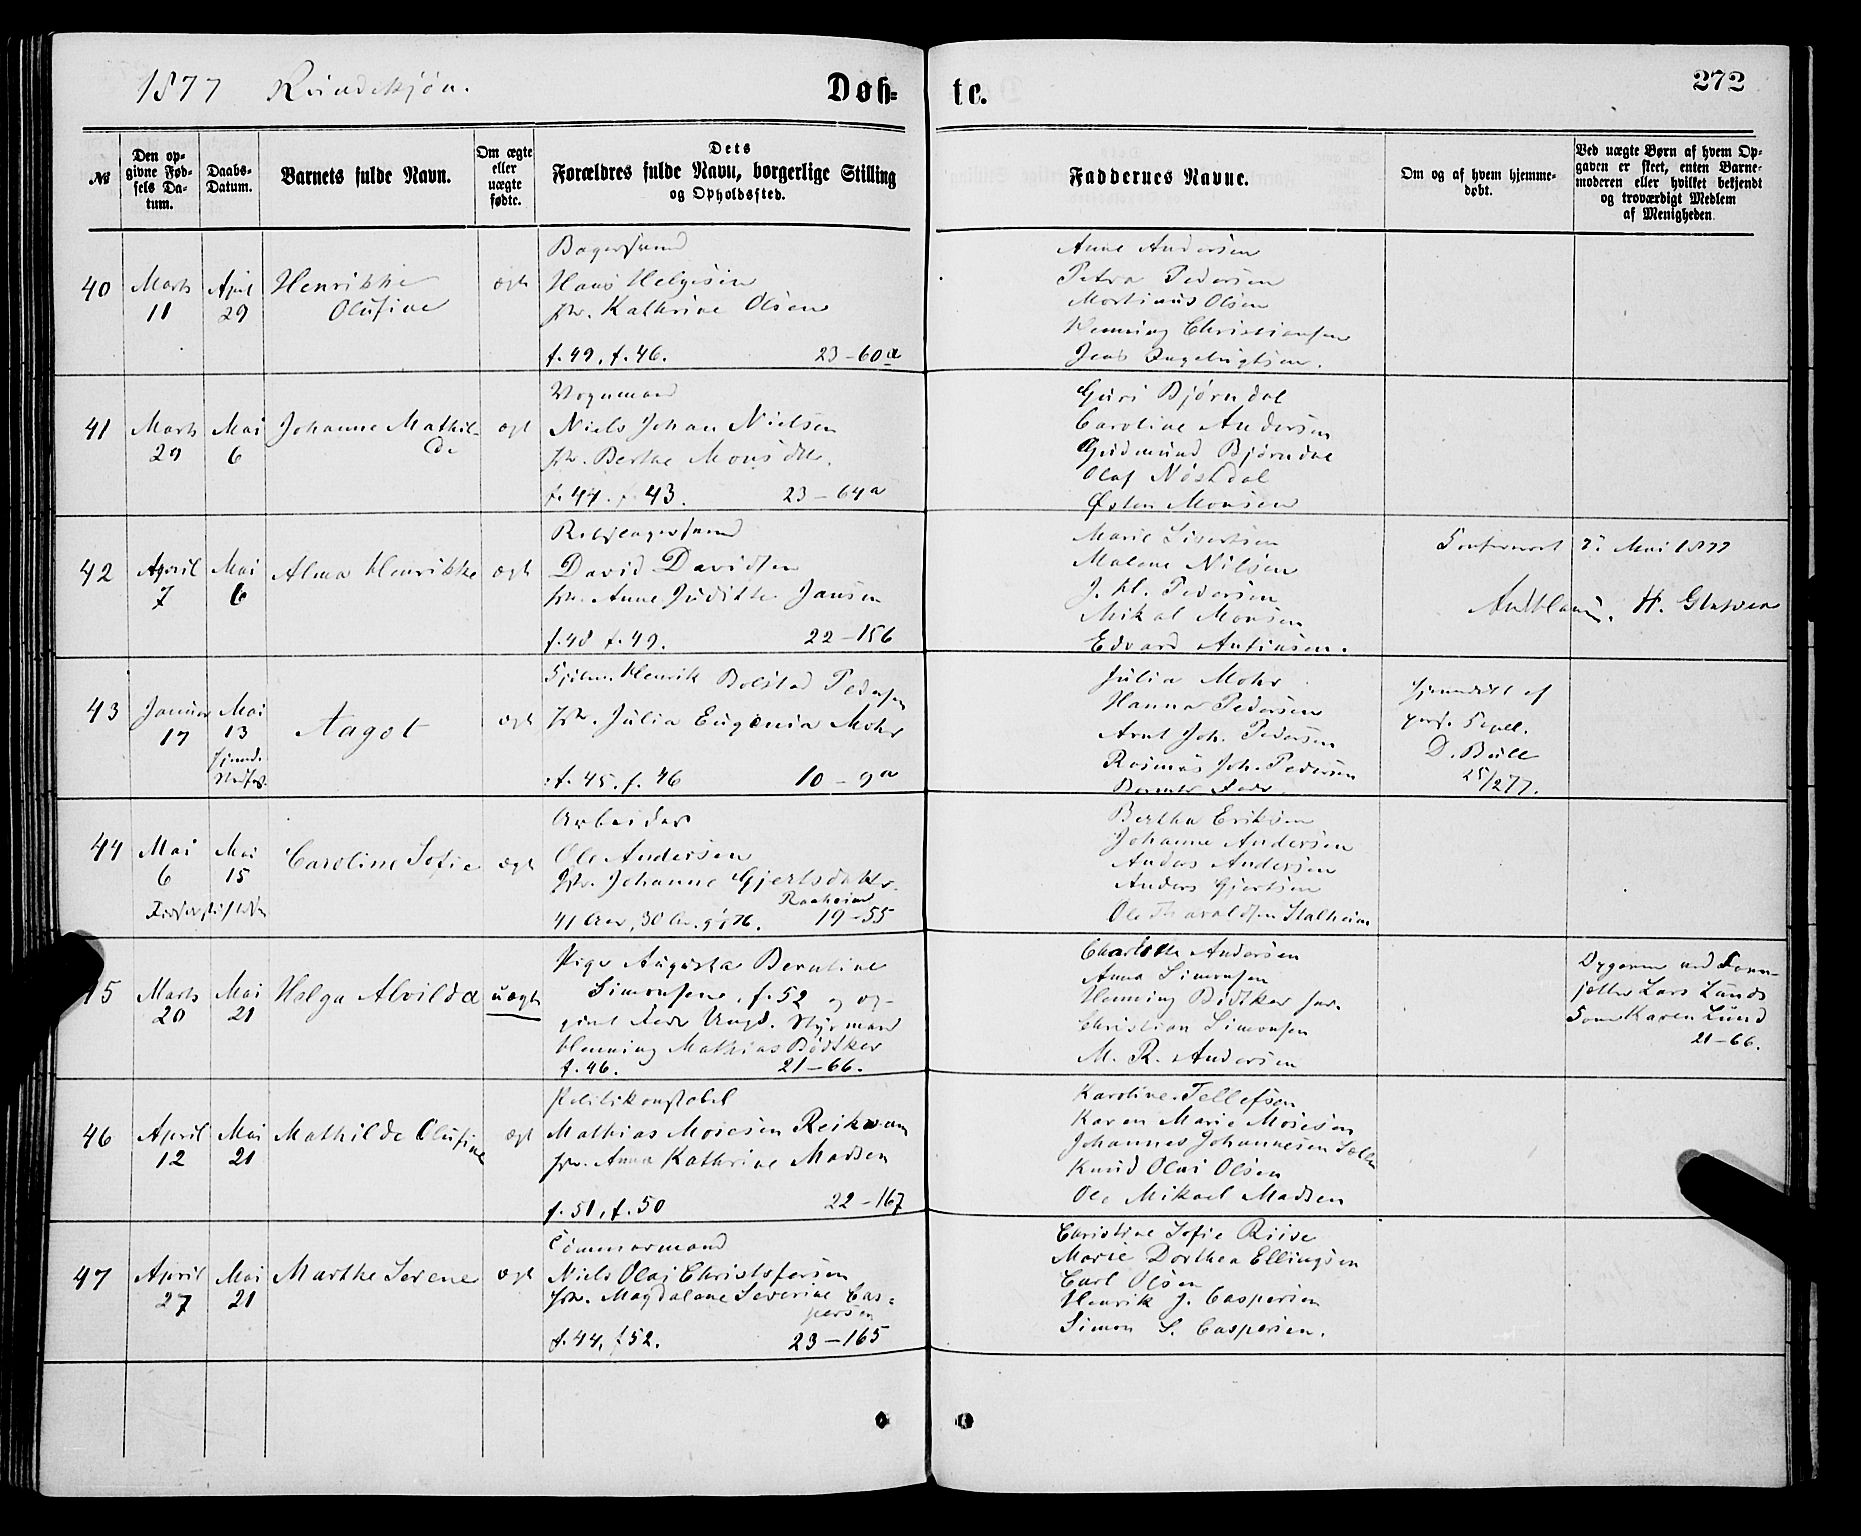 1877 Kvindekjøn.
Døb-
te.
272
№
Den op-
givne Fød-
sels Da-
tum.
Daabs-
Datum.
Barnets fulde Navn.
Om ægte
eller
uægte
fødte.
Dets
Forældres fulde Navn, borgerlige Stilling
og Opholdssted.
Faddernes Navne.
Om og af hvem hjemme-
døbt.
Ved uægte Børn af hvem Op-
gaven er skeet, enten Barne-
moderen eller hvilket bekjendt
og troværdigt Medlem
af Menigheden.
40
Marts
11
April
29
Henrikke
Olufine
ægte
Bagersvend
Hans Helgesen
Kathrine Olsen
f. 49, f. 46. 23-60a
Anne Andersen
Petra Pedersen
Martinus Olsen
Henning Christiansen
Jens Ingebrigtsen.
41
Marts
29
Mai
6
Johanne Mathil-
de
ægt
Vognmand
Niels Johan Nielsen
Berthe Monsdtr.
f. 44. f. 43. 23-64a
Guri Bjørndal
Caroline Andersen
Gudmund Bjørndal
Olaf
Østen Monsen
42
April
7
Mai
6
Alma Henrikke
ægt
Rebslagersvend
David Davidsen
Anne Judithe Jansen
f. 48 f. 49. 22-156
Marie Sivertsen
Malene Nilsen
J. H. Pedersen
Mikal Monsen
Edvard Antinsen.
Mai 1877
H.
43
Januar
17
Mai
13
Aagot
ægt
Henrik Bolstad Pedersen
Julia Eugenia Mohr
f. 45, f. 46 10-9a
Julia Mohr
Hanna Pedersen
Arnt Joh. Pedersen
Rasmus Joh. Pedersen
Barnets Fader
hjemmedøbt af
pers. Capel.
D. Bull
25/2 77.
44
Mai
6
Mai
15
Caroline Sofie
ægt
Arbeider
Ole Andersen
Johanne Gjertsdatter
Raaheim
19-55
Bertha Eriksen
Johanne Andersen
Anders Andersen
Anders Gjertsen
Ole Tharaldsen Stalheim
45
Marts
20
Mai
21
Helga Alvilda
uægte
Pige Augusta Berntine
Simonsen, f. 52 og op-
givet Fader Ungk. Styrmand
Henning Mathias Bødtker
f. 46. 21-66.
Charlotte Andersen
Anna Simonsen
Henning Bødtker
Christian Simonsen
M. R. Andersen
Opgaven ved
Lars Lunds
Karen Lund
21-66.
46
April
12
Mai
21
Mathilde Olufine
ægt
Politikonstabel
Mathias Moiesen Reikvam
Anna Kathrine Madsen
f. 51, f. 50 22-167
Karoline Tellefsen
Karen Marie Moiesen
Johannes Johannesen
Knud Olai Olsen
Ole Mikael Madsen
47
April
27
Mai
21
Marthe Serene
ægt
Tømmermand
Niels Olai Christofersen
Magdalene Severine Cas-
persen
f. 44, f 52. 23-165
Christine Sofie Riise
Marie Dorthea Ellingsen
Carl Olsen
Henrik J. Caspersen
Simon S. Caspersen.